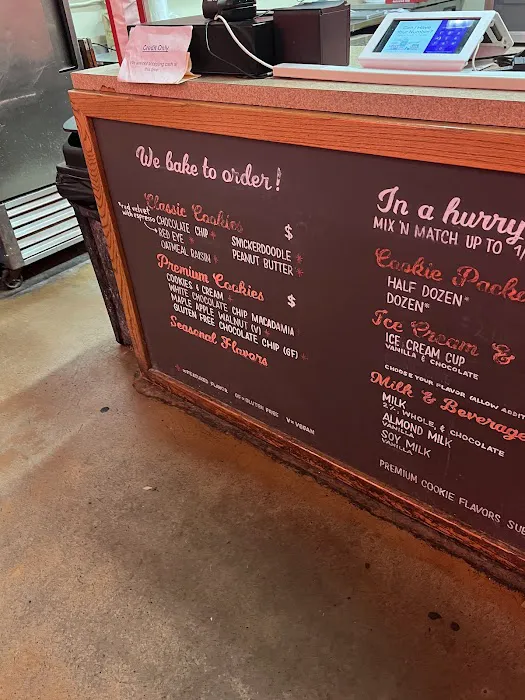 Credit Only
We bake to order!
Classic Cookies $
*red velvet
with espresso
CHOCOLATE CHIP *
SNICKERDOODLE *
RED EYE *
PEANUT BUTTER *
OATMEAL RAISIN *
Premium Cookies $
COOKIES & CREAM *
WHITE CHOCOLATE CHIP MACADAMIA *
MAPLE APPLE WALNUT (V) *
GLUTEN FREE CHOCOLATE CHIP (GF) *
Seasonal Flavors
GF=GLUTEN FREE V=VEGAN
In a hurry
MIX 'N MATCH UP TO
Cookie Packa
HALF DOZEN*
DOZEN*
Ice Cream &
ICE CREAM CUP
VANILLA & CHOCOLATE
CHOOSE YOUR FLAVOR (ALLOW ADDIT
Milk & Beverage
MILK
2%, WHOLE, & CHOCOLATE
ALMOND MILK
VANILLA
SOY MILK
VANILLA
PREMIUM COOKIE FLAVORS SUB